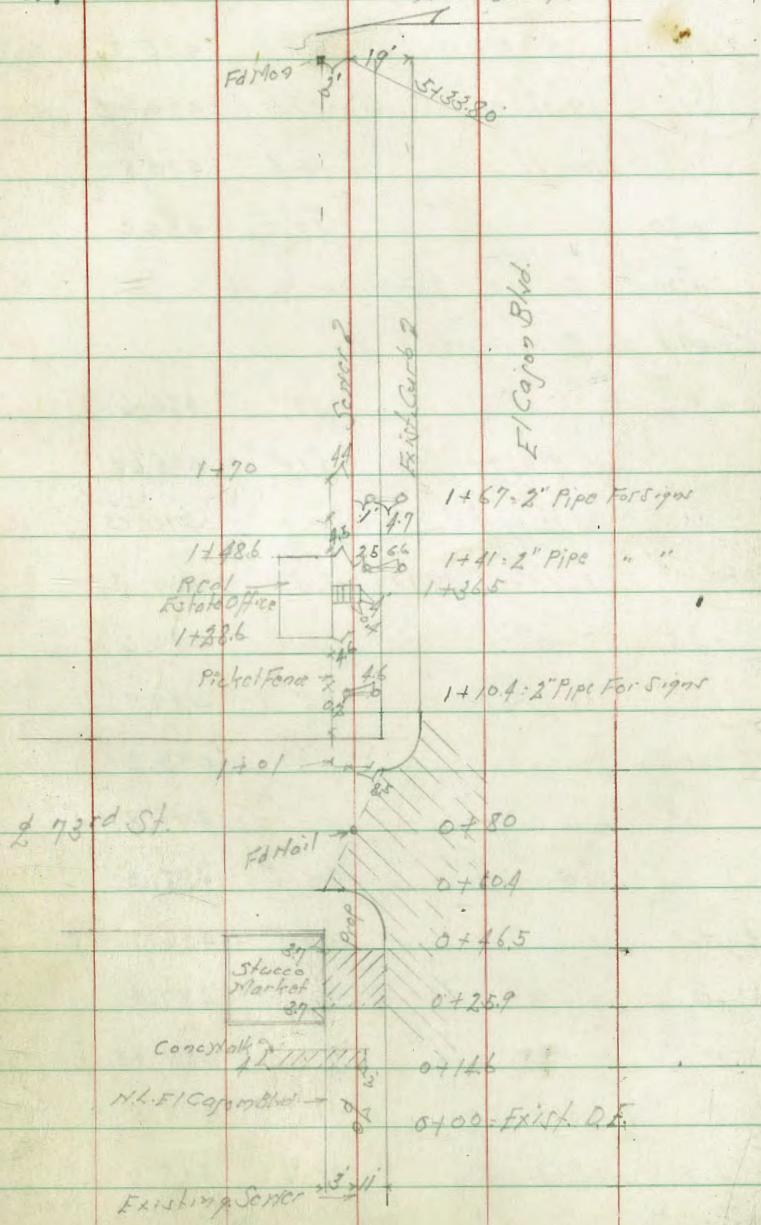 Fd Mon
2'
19'
5+33.80
El Cajon Blvd.
Sewer
Exist. Curb
1+70
4.4
1+67 = 2" Pipe For Signs
1'
4.7
4.5
1+48.6
2.5
6.6
1+41 = 2" Pipe " "
Real
Estate Office
1+36.5
1+28.6
4.6
Picket Fence
4.6
1+10.4 = 2" Pipe For Signs
1+01
8.5
73rd St.
Fd Nail
0+80
0+60.4
Prop
0+46.5
3.7
Stucco
Market
3.7
0+25.9
Conc Walk
4'
0+14.6
N.L. El Cajon Blvd.
0+00 = Exist. D.E.
Existing Sewer
3'
11'